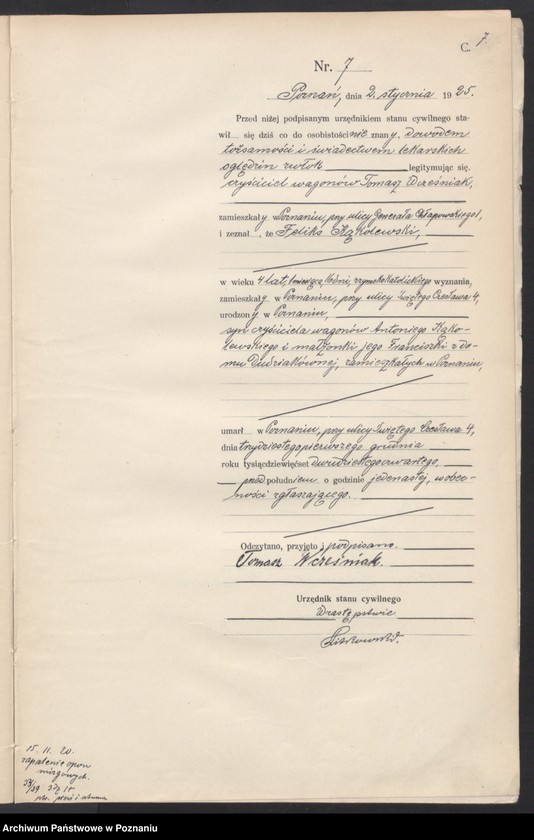 C. 7.
Nr. 7
Poznań, dnia 2. stycznia 1925.
Przed niżej podpisanym urzędnikiem stanu cywilnego sta-
wił się dziś co do osobistości nie znany, dowodem
tożsamości i świadectwem lekarskich
oględzin zwłok legitymując się.
czyściciel wagonów Tomasz Wrześniak,
zamieszkały w Poznaniu, przy ulicy Generała Chłapowskiego 1,
i zeznał, że Feliks Kąkolewski,
w wieku 4 lat, 1 miesiąca, dni, rzymskokatolickiego wyznania,
zamieszkały w Poznaniu, przy ulicy Świętego Czesława 4,
urodzony w Poznaniu,
syn czyściciela wagonów Antoniego Kąko-
lewskiego i małżonki jego Franciszki z do-
mu Dudziakównej, zamieszkałych w Poznaniu,
umarł w Poznaniu, przy ulicy Świętego Czesława 4,
dnia trzydziestego pierwszego grudnia
roku tysiącdziewięćset dwudziestego czwartego,
przed południem o godzinie jedenastej, w obec-
ności zgłaszającego.
Odczytano, przyjęto i podpisano.
Tomasz Wrześniak.
Urzędnik stanu cywilnego
W zastępstwie
15. 11. 20.
zapalenie opon
mózgowych.
Archiwum Państwowe w Poznaniu